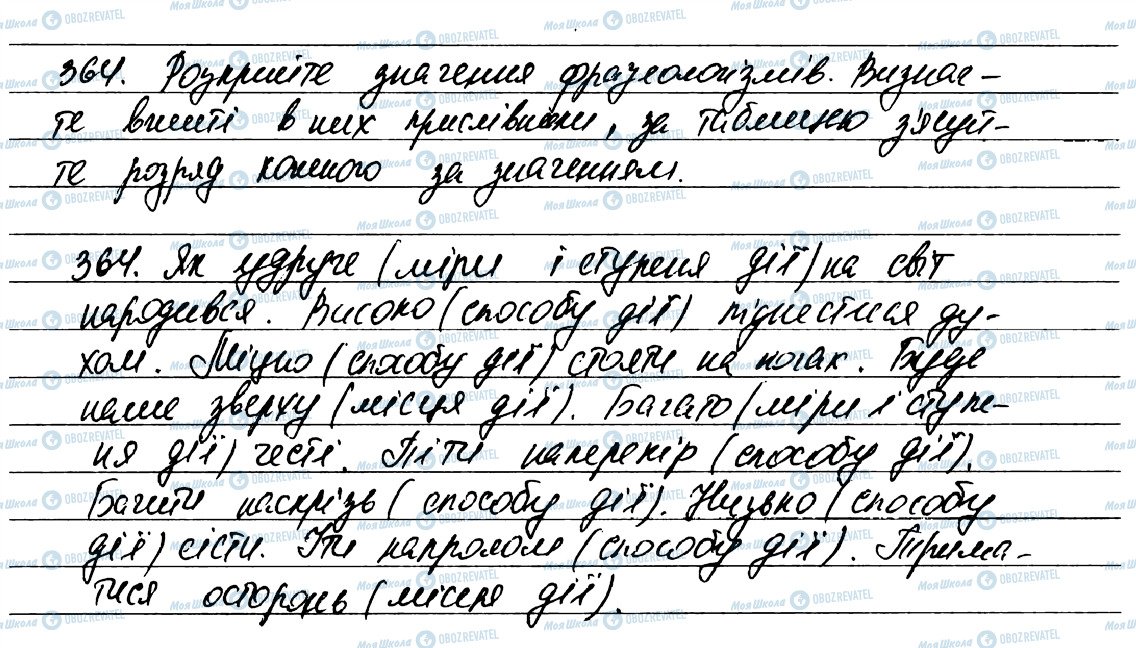 364. Розкрийте значення фразеологізмів. Визнач-
те вжиті в них прислівники, за таблицею з'ясуй-
те розряд кожного за значенням.
364. Як удруге (міри і ступеня дії) на світ
народився. Високо (способу дії) піднестися ду-
хом. Міцно (способу дії) стояти на ногах. Буде
наше зверху (місця дії). Багато (міри і ступе-
ня дії) честі. Піти наперекір (способу дії).
Бачити наскрізь (способу дії). Низько (способу
дії) сісти. Іти напролом (способу дії). Трима-
тися осторонь (місця дії).